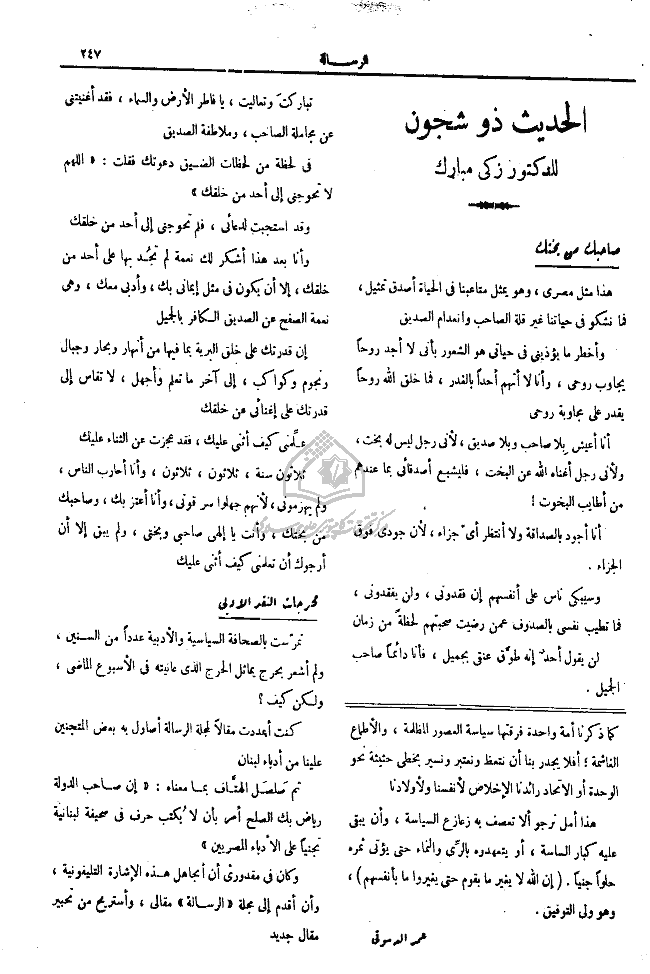 ٢٤٧
الرسالة
الحديث ذو شجون
للدكتور زكى مبارك
صاحبك من بختك
هذا مثل مصرى ، وهو يمثل متاعبنا فى الحياة أصدق تمثيل ،
فما نشكو فى حياتنا غير قلة الصاحب وانعدام الصديق
وأخطر ما يؤذينى فى حياتى هو الشعور بأنى لا أجد روحاً
يجاوب روحى ، وأنا لا أتهم أحداً بالغدر ، فما خلق الله روحاً
يقدر على مجاوبة روحى
أنا أعيش بلا صاحب وبلا صديق ، لأنى رجل ليس له بخت ،
ولأنى رجل أغناه الله عن البخت ، فليشبع أصدقائى بما عندهم
من أطايب البخوت !
أنا أجود بالصداقة ولا أنتظر أىّ جزاء ، لأن جودى فوق
الجزاء .
وسيبكى ناس على أنفسهم إن فقدونى ، ولن يفقدونى ،
فما تطيب نفسى بالصدوف عمن رضيت صحبتهم لحظةً من زمان
لن يقول أحدٌ إنه طوّق عنقى بجميل ، فأنا دائماً صاحب
الجميل .
كما ذكرنا أمة واحدة فرقتها سياسة العصور المظلمة ، والأطماع
الغاشمة ؛ أفلا يجدر بنا أن نتعظ ونعتبر ونسير بخطى حثيثة نحو
الوحدة أو الاتحاد رائدنا الإخلاص لأنفسنا ولأولادنا
هذا أمل نرجو ألا تعصف به زعازع السياسة ، وأن يبقى
عليه كبار الساسة ، أو يتعهدوه بالرِّى والنماء حتى يؤتى ثمره
حلواً جنياً . ( إن الله لا يغير ما بقوم حتى يغيروا ما بأنفسهم ) ،
وهو ولى التوفيق .
عمر الدسوقى
تباركتَ وتعاليت ، يا فاطر الأرض والسماء ، فقد أغنيتنى
عن مجاملة الصاحب ، وملاطفة الصديق
فى لحظة من لحظات الضيق دعوتك فقلت : « اللهم
لا تحوجنى إلى أحد من خلقك »
وقد استجبت لدعائى ، فلم تحوجنى إلى أحد من خلقك
وأنا بعد هذا أشكر لك نعمة لم تجُد بها على أحد من
خلقك ، إلا أن يكون فى مثل إيمانى بك ، وأدبى معك ، وهى
نعمة الصفح عن الصديق الكافر بالجميل
إن قدرتك على خلق البرية بما فيها من أنهار وبحار وجبال
ونجوم وكواكب ، إلى آخر ما تعلم وأجهل ، لا تقاس إلى
قدرتك على إغنائى عن خلقك
علّمنى كيف أثنى عليك ، فقد عجزت عن الثناء عليك
ثلاثون سنة ، ثلاثون ، ثلاثون ، وأنا أحارب الناس ،
ولم يهزمونى ، لأنهم جهلوا سر قوتى ، وأنا أعتز بك ، وصاحبك
من بختك ، وأنت يا إلهى صاحبى وبختى ، ولم يبق إلا أن
أرجوك أن تعلمنى كيف أثنى عليك
محرجات النقد الأدبى
تمرّست بالصحافة السياسية والأدبية عدداً من السنين ،
ولم أشعر بحرج يماثل الحرج الذى عانيته فى الأسبوع الماضى ،
ولكن كيف ؟
كنت أعددت مقالاً لمجلة الرسالة أصاول به بعض المتجنين
علينا من أدباء لبنان
ثم صَلصَل الهتّاف بما معناه : « إن صاحب الدولة
رياض بك الصلح أمر بأن لا يُكتب حرف فى صحيفة لبنانية
تجنياً على الأدباء المصريين »
وكان فى مقدورى أن أتجاهل هذه الإشارة التليفونية ،
وأن أقدم إلى مجلة « الرسالة » مقالى ، وأستريح من تحبير
مقال جديد